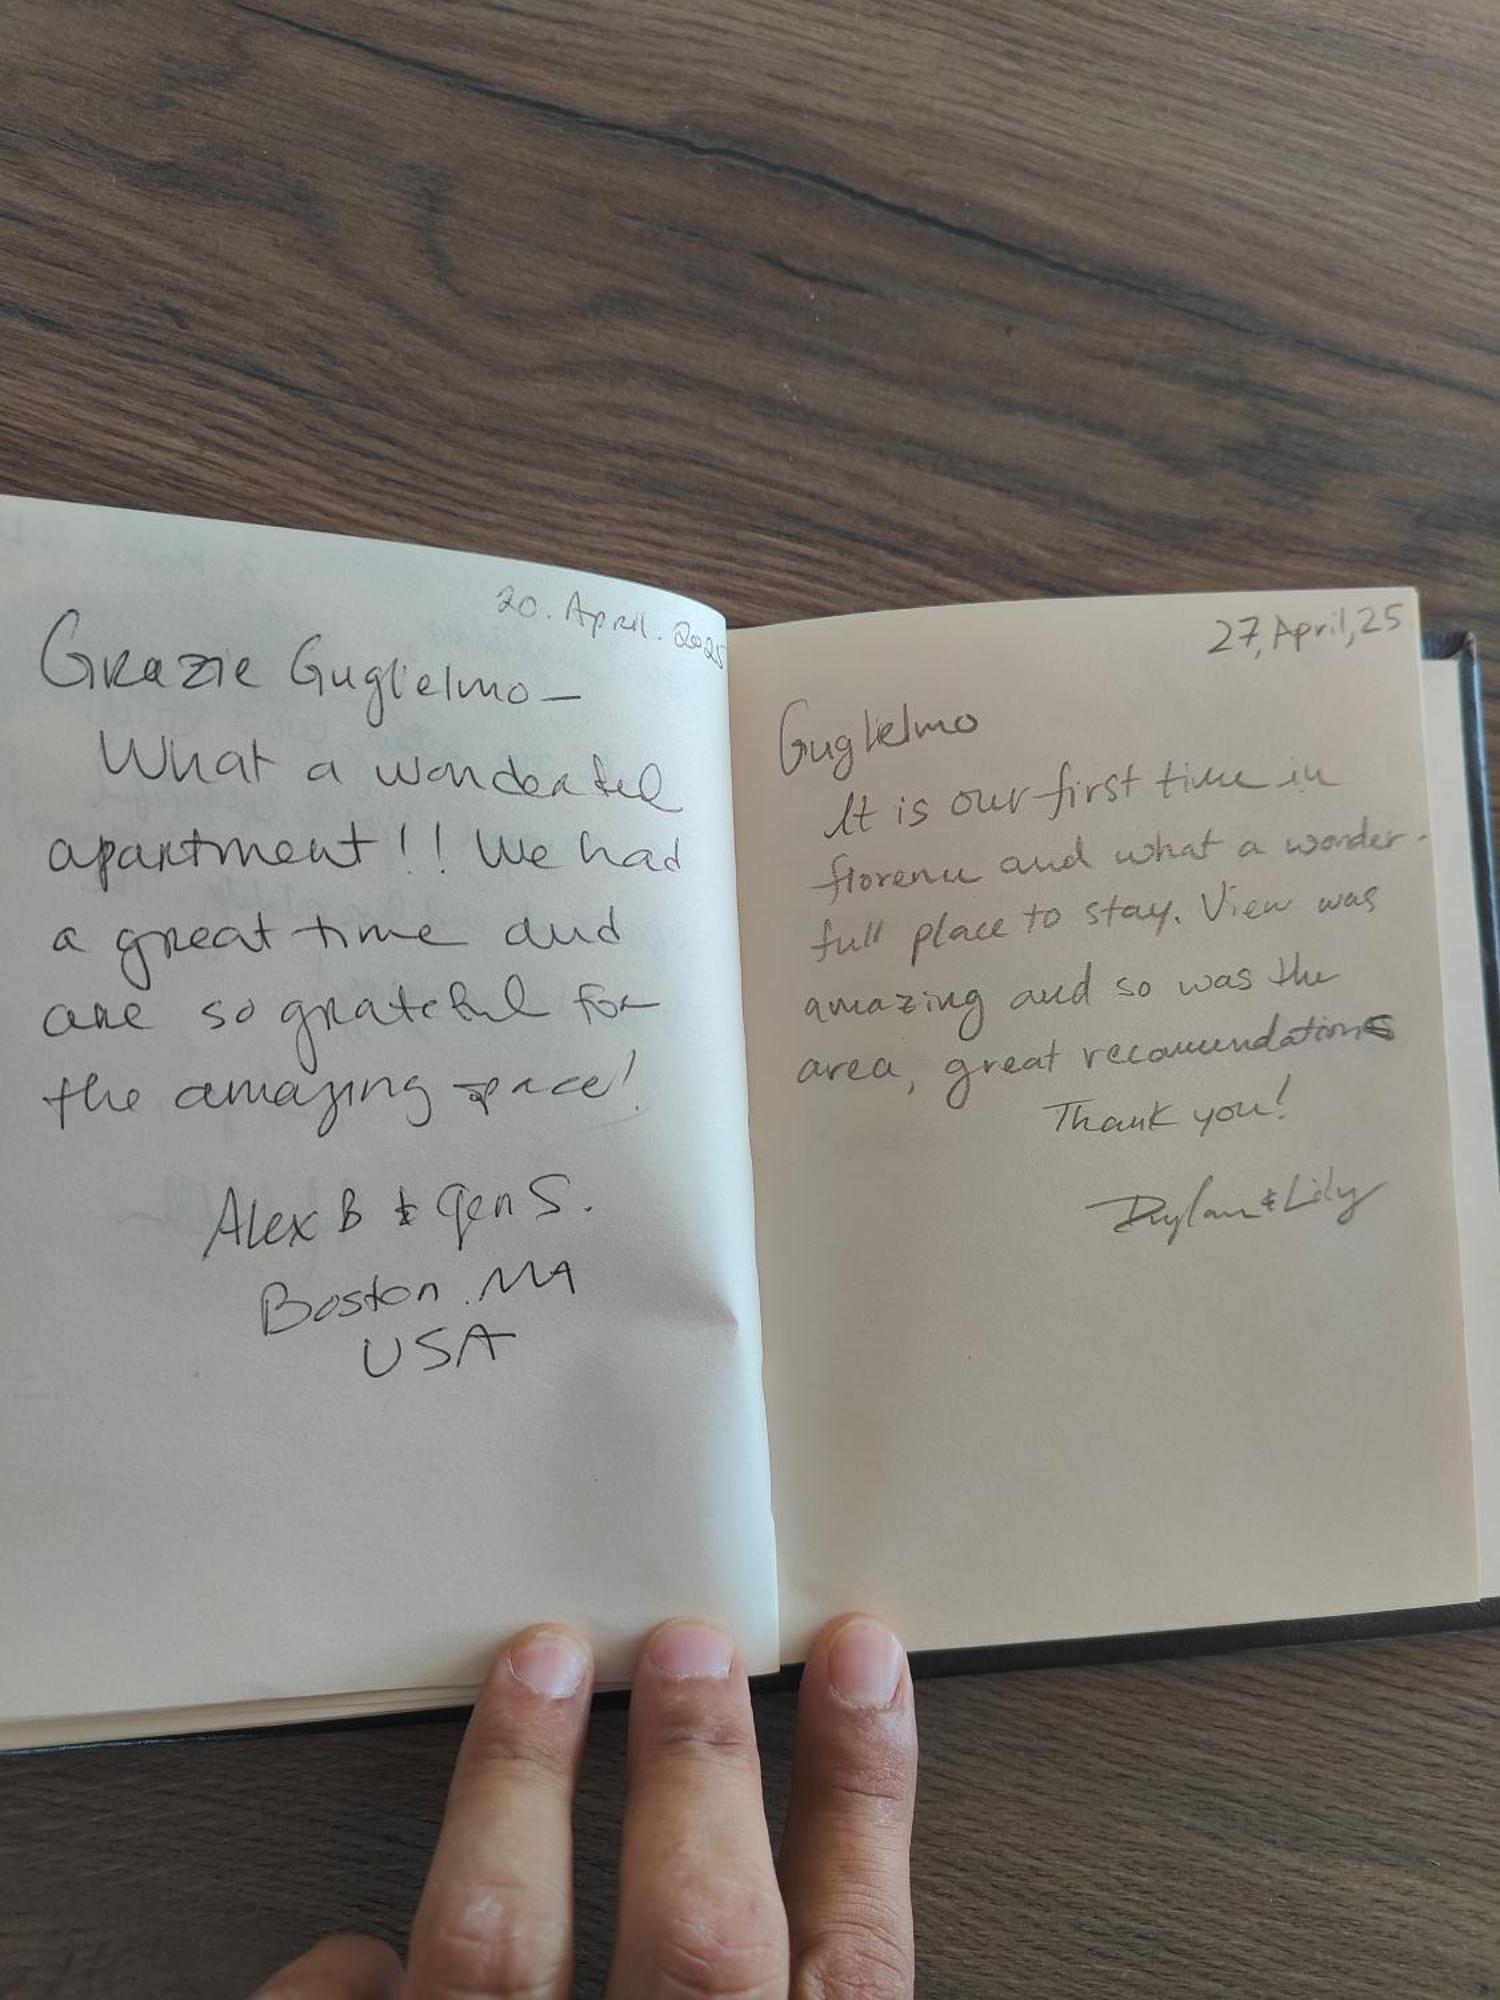 20. April. 2025
Grazie Guglielmo –
What a wonderful
apartment!! We had
a great time and
are so grateful for
the amazing space!
Alex B & Jen S.
Boston. MA
USA
27, April, 25
Guglielmo
It is our first time in
florence and what a wonder-
full place to stay. View was
amazing and so was the
area, great recomendations
Thank you!
Dylan & Lily